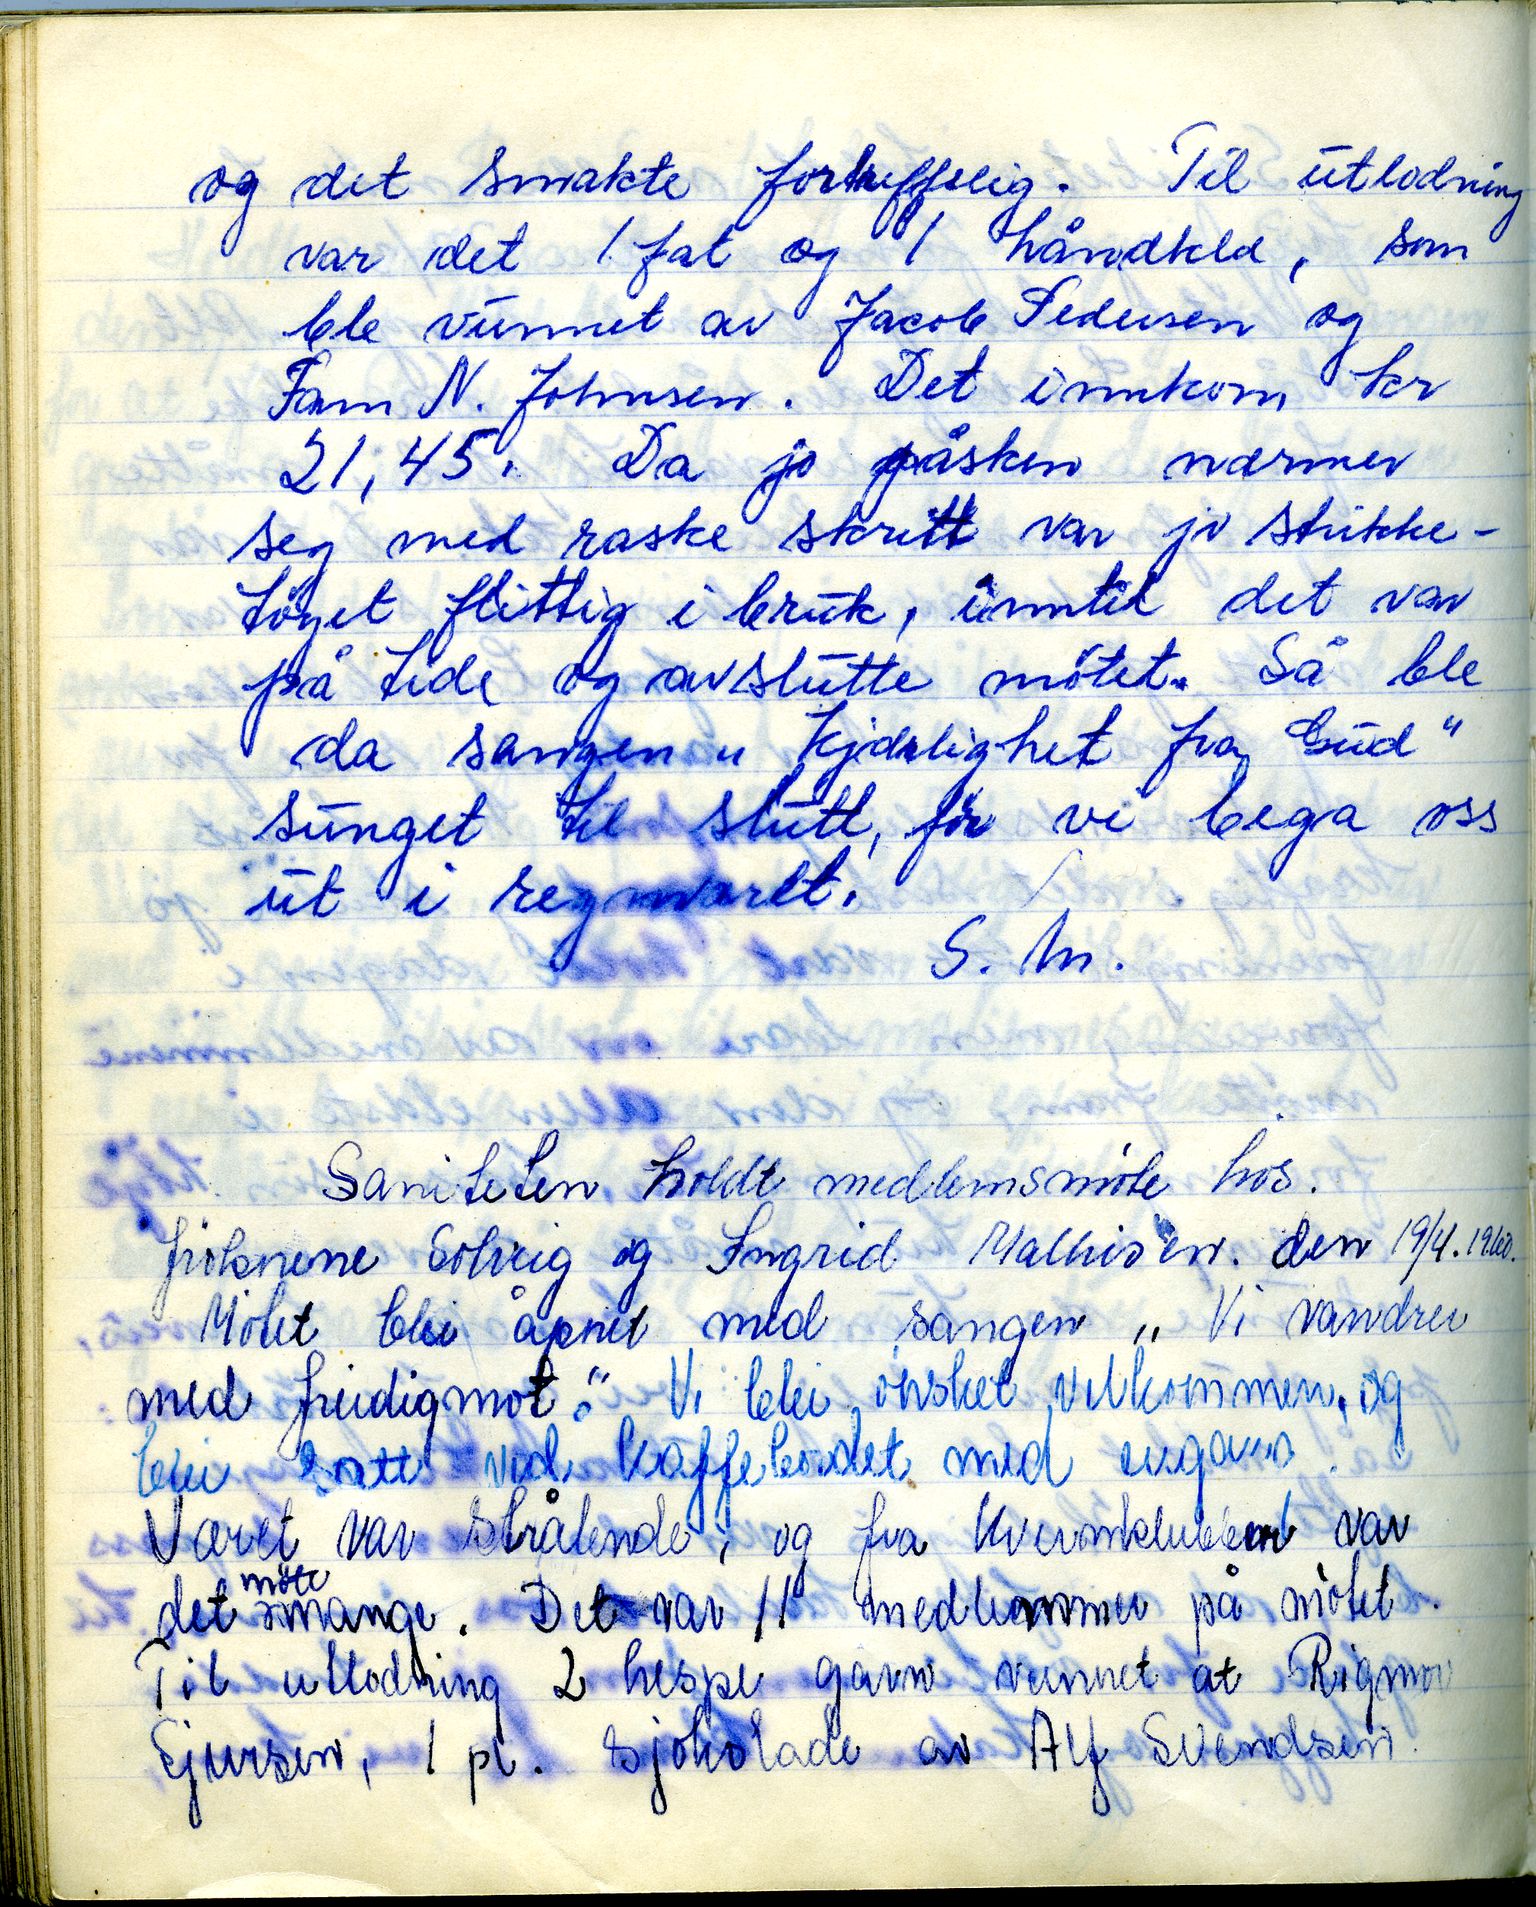 og det smakte fortreffelig. Til utlodning
var det 1 fat og 1 håndkld, som
ble vunnet av Jacob Pedersen og
Fam N. Johnsen. Det innkom kr
21,45. Da jo påsken nærmer
seg med raske skritt var jo strikke-
töyet flittig i bruk, inntil det var
på tide og avslutte mötet. Så ble
da sangen „ Kjærlighet fra Gud"
sunget til slutt, för vi bega oss
ut i regnværet.
S. M.
Saniteten holdt medlemsmöte hos.
fröknene Solveig og Ingrid Mathisen. den 19/4. 1960.
Mötet blei åpnet med sangen „ Vi vandrer
med freidigmot." Vi blei önsket velkommen, og
blei satt ved kaffebordet med engang
Været var strålende, og fra Kvinneklubben var
det möte mange. Det var 11 medlemmer på mötet.
Til utlodning 2 hespe garn vunnet at Rigmor
Ejursen, 1 pl. sjokolade av Alf Svendsen.